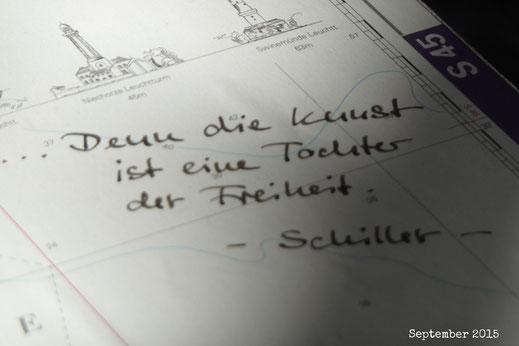 Swinemünde Leuchtt.
63m
67
S 45
Niechorze Leuchtturm
45m
37
42
... Denn die Kunst
ist eine Tochter
der Freiheit.
- Schiller -
E
September 2015